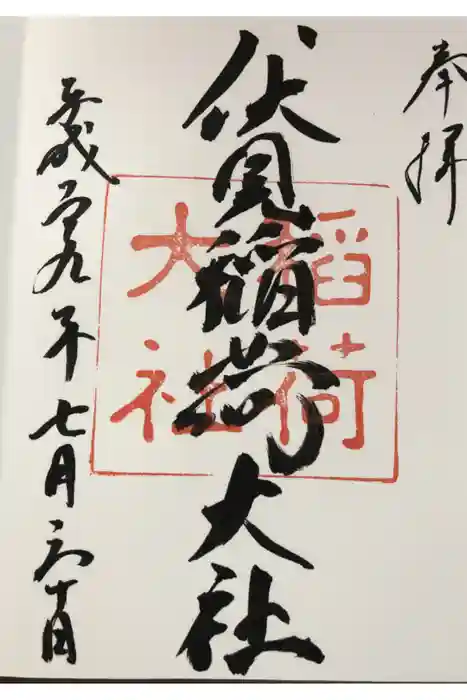 奉拝
伏見稲荷大社
平成二十九年七月十日
稲荷
大社